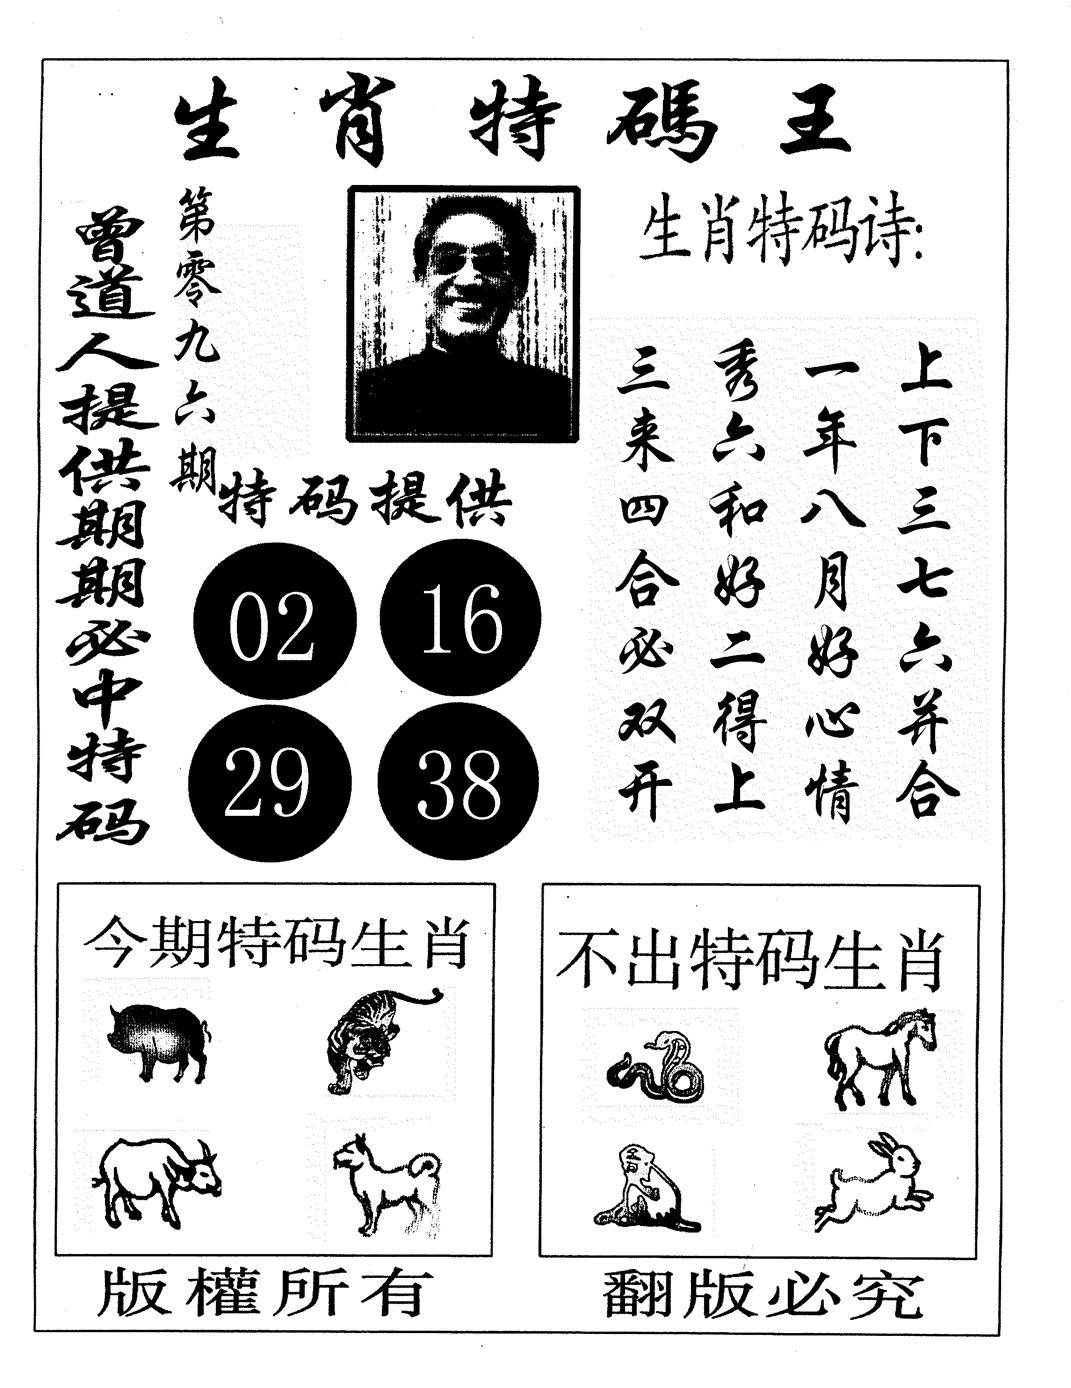 生肖特碼王
曾道人提供期期必中特码
第零九六期
生肖特码诗:
上下三七六并合
一年八月好心情
秀六和好二得上
三来四合必双开
特码提供
02
16
29
38
今期特码生肖
不出特码生肖
版權所有
翻版必究